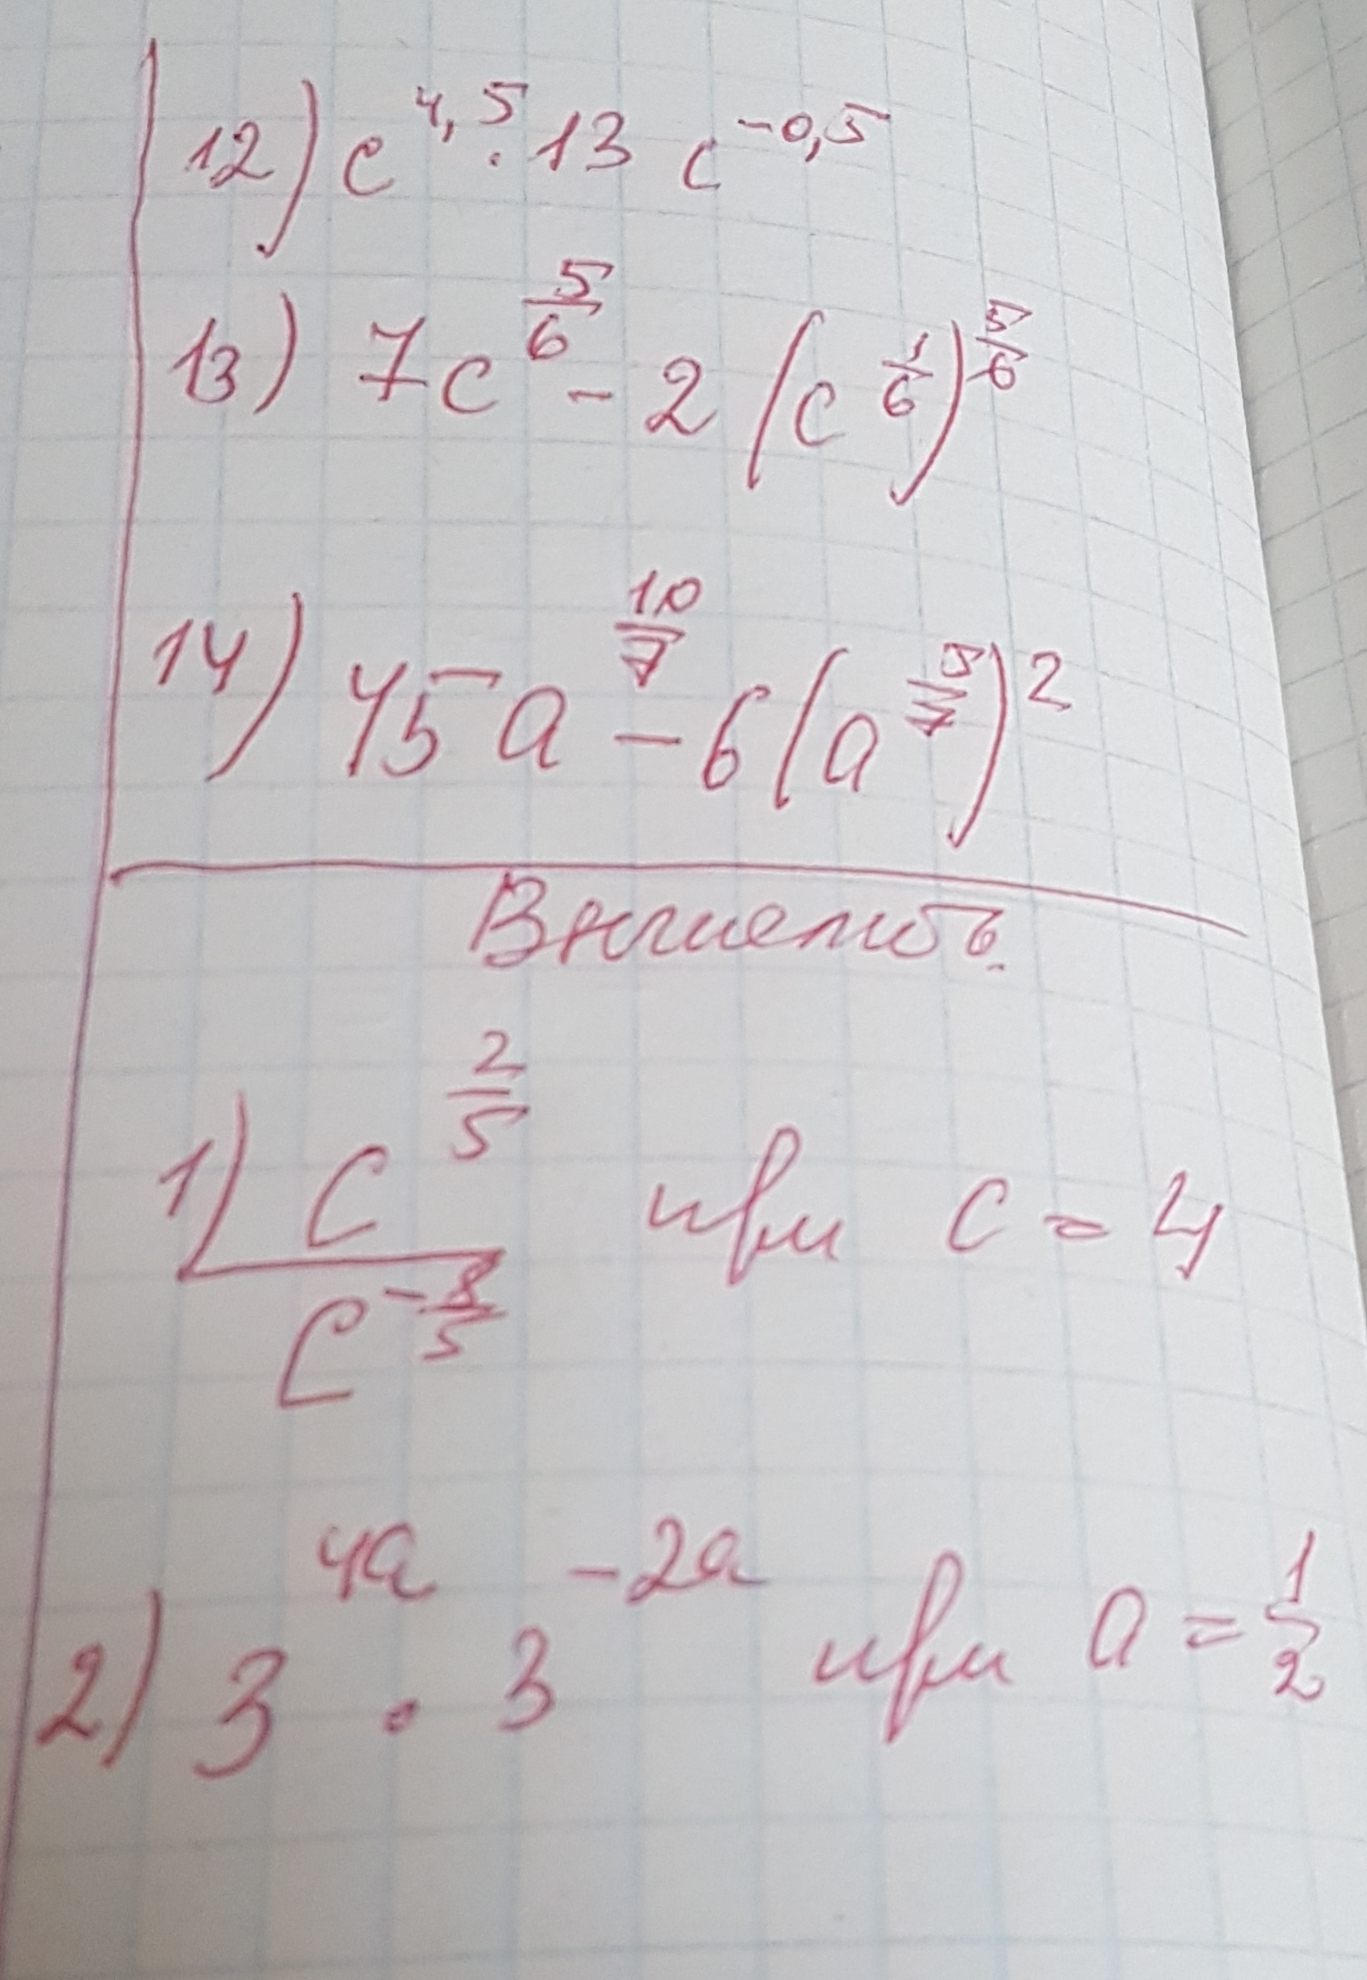 12) c^4,5 · 13 c^-0,5
13) 7c^(5/6) - 2 (c^(1/6))^(5/6)
14) 45a^(10/7) - 6(a^(5/7))^2
Вычислить.
1) c^(2/5) / c^(-8/5) при c = 4
2) 3^4a · 3^-2a при a = 1/2